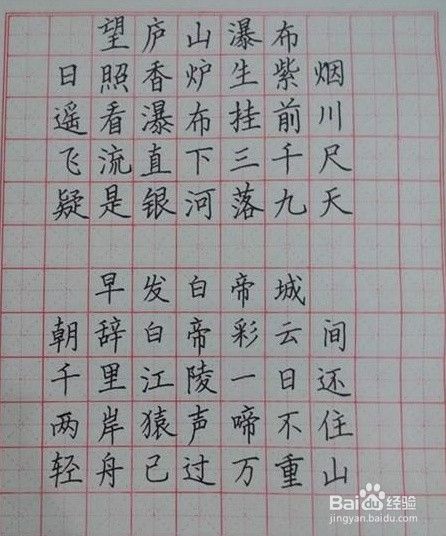 望庐山瀑布
日照香炉生紫烟
遥看瀑布挂前川
飞流直下三千尺
疑是银河落九天
早发白帝城
朝辞白帝彩云间
千里江陵一日还
两岸猿声啼不住
轻舟已过万重山
Baidu经验
jingyan.baidu.com